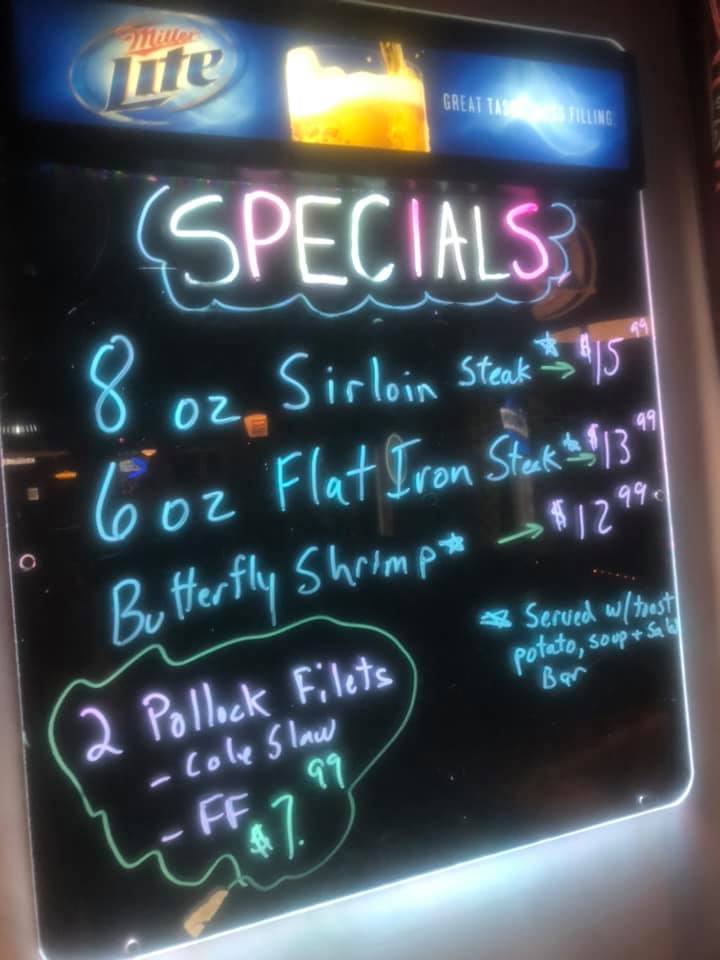 Miller
Lite
GREAT TASTE LESS FILLING.
SPECIALS
8 oz Sirloin Steak → $15.99
6 oz Flat Iron Steak → $13.99
Butterfly Shrimp* → $12.99
* Served w/toast
potato, soup + Salad
Bar
2 Pollock Filets
- Cole Slaw
- FF
$7.99